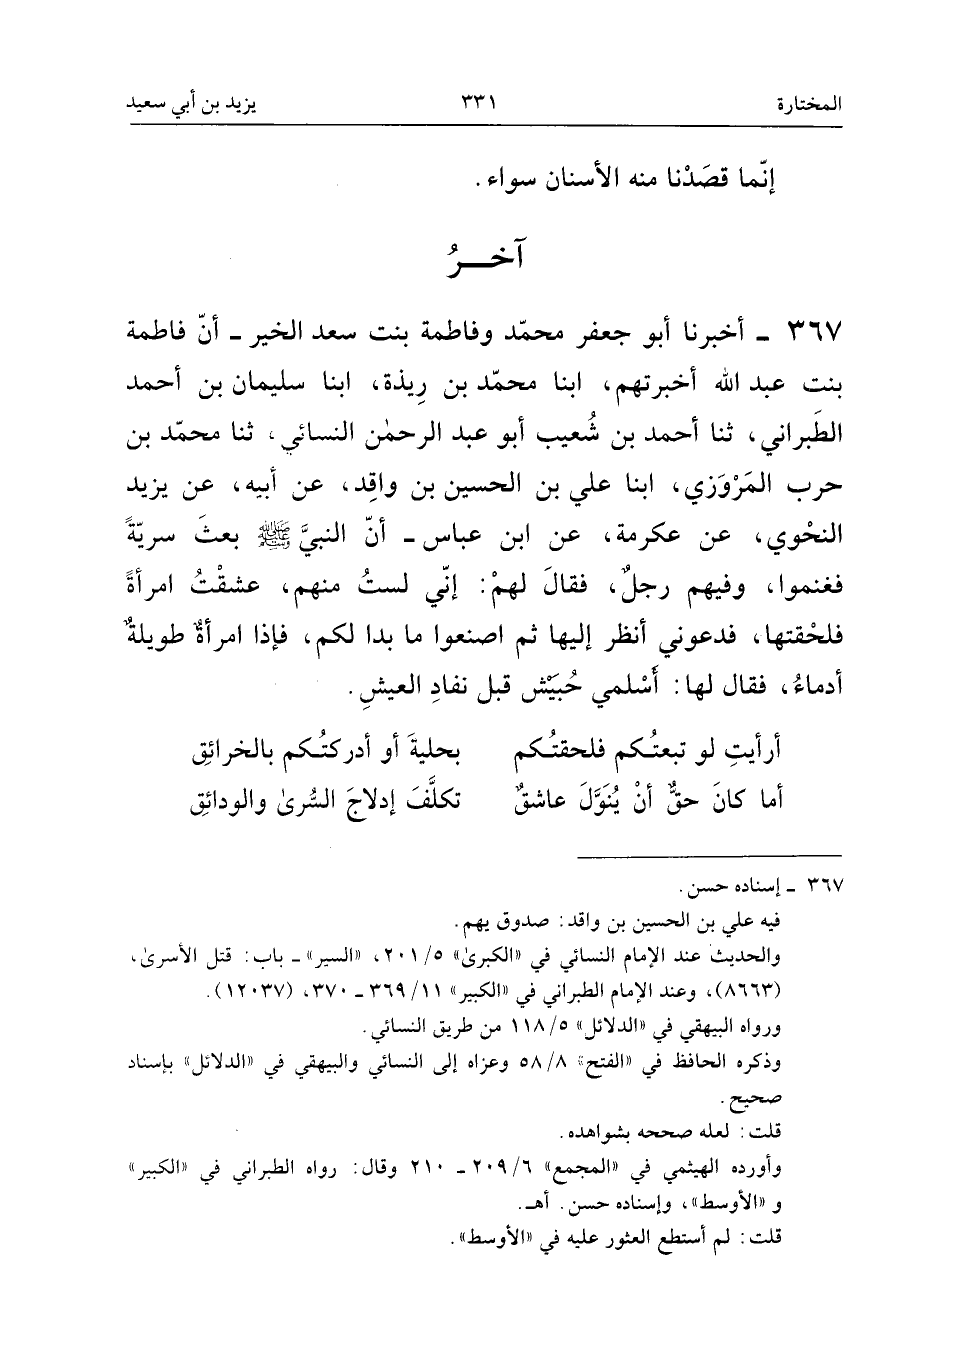 المختارة ٣٣١ يزيد بن أبي سعيد
إنّما قصَدْنا منه الأسنان سواء .
آخـــرُ
٣٦٧ ـ أخبرنا أبو جعفر محمّد وفاطمة بنت سعد الخير ـ أنّ فاطمة
بنت عبد الله أخبرتهم، ابنا محمّد بن رِيذة، ابنا سليمان بن أحمد
الطَبراني، ثنا أحمد بن شُعيب أبو عبد الرحمٰن النسائي، ثنا محمّد بن
حرب المَرْوَزي، ابنا علي بن الحسين بن واقِد، عن أبيه، عن يزيد
النحْوي، عن عكرمة، عن ابن عباس ـ أنّ النبيَّ ﷺ بعثَ سريّةً
فغنموا، وفيهم رجلٌ، فقالَ لهمْ: إنّي لستُ منهم، عشقْتُ امرأةً
فلحْقتها، فدعوني أنظر إليها ثم اصنعوا ما بدا لكم، فإذا امرأةٌ طويلةٌ
أدماءُ، فقال لها: أَسْلمي حُبَيْش قبل نفادِ العيشِ.
أرأيتِ لو تبعتُـكم فلحقتُـكم بحليةَ أو أدركتُـكم بالخرائقِ
أما كانَ حقٌّ أنْ يُنَوَّلَ عاشقٌ تكلَّفَ إدلاجَ السُّرىٰ والودائقِ
٣٦٧ ـ إسناده حسن.
فيه علي بن الحسين بن واقد: صدوق يهم.
والحديث عند الإمام النسائي في «الكبرىٰ» ٢٠١/٥، «السير» ـ باب: قتل الأسرىٰ،
(٨٦٦٣)، وعند الإمام الطبراني في «الكبير» ٣٦٩/١١ ـ ٣٧٠، (١٢٠٣٧).
ورواه البيهقي في «الدلائل» ١١٨/٥ من طريق النسائي.
وذكره الحافظ في «الفتح» ٥٨/٨ وعزاه إلى النسائي والبيهقي في «الدلائل» بإسناد
صحيح.
قلت: لعله صححه بشواهده.
وأورده الهيثمي في «المجمع» ٢٠٩/٦ ـ ٢١٠ وقال: رواه الطبراني في «الكبير»
و «الأوسط»، وإسناده حسن. أهـ.
قلت: لم أستطع العثور عليه في «الأوسط».